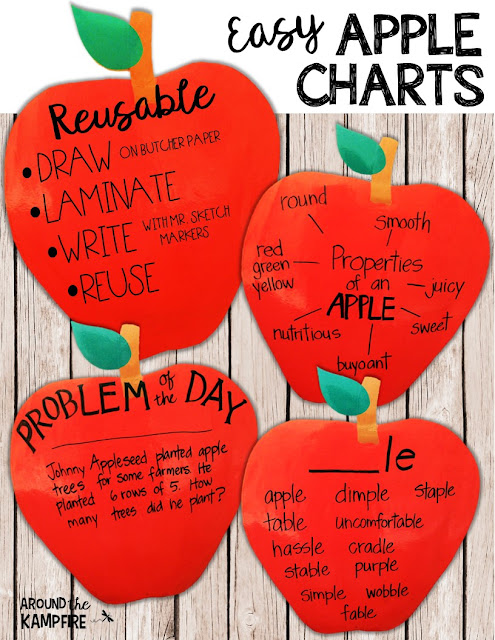 Easy APPLE
CHARTS
Reusable
•DRAW ON BUTCHER PAPER
•LAMINATE
•WRITE WITH MR. SKETCH
MARKERS
•REUSE
round
smooth
red
green
yellow
Properties
of an
APPLE
juicy
nutritious
sweet
buoyant
PROBLEM of the DAY
Johnny Appleseed planted apple
trees for some farmers. He
planted 6 rows of 5. How
many trees did he plant?
____le
apple dimple staple
table uncomfortable
hassle cradle
stable purple
simple wobble
fable
AROUND the
KAMPFIRE